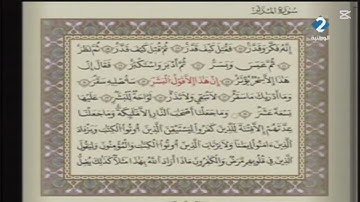 سُورَةُ المُدَّثِّر
2
الوطنية
إِنَّهُۥ فَكَّرَ وَقَدَّرَ فَقُتِلَ كَيْفَ قَدَّرَ ثُمَّ قُتِلَ كَيْفَ قَدَّرَ ثُمَّ نَظَرَ
ثُمَّ عَبَسَ وَبَسَرَ ثُمَّ أَدْبَرَ وَٱسْتَكْبَرَ فَقَالَ إِنْ
هَٰذَآ إِلَّا سِحْرٌ يُؤْثَرُ إِنْ هَٰذَآ إِلَّا قَوْلُ ٱلْبَشَرِ سَأُصْلِيهِ سَقَرَ
وَمَآ أَدْرَىٰكَ مَا سَقَرُ لَا تُبْقِى وَلَا تَذَرُ لَوَّاحَةٌ لِّلْبَشَرِ عَلَيْهَا
تِسْعَةَ عَشَرَ وَمَا جَعَلْنَآ أَصْحَٰبَ ٱلنَّارِ إِلَّا مَلَٰٓئِكَةً وَمَا جَعَلْنَا
عِدَّتَهُمْ إِلَّا فِتْنَةً لِّلَّذِينَ كَفَرُوا۟ لِيَسْتَيْقِنَ ٱلَّذِينَ أُوتُوا۟ ٱلْكِتَٰبَ وَيَزْدَادَ
ٱلَّذِينَ ءَامَنُوٓا۟ إِيمَٰنًا وَلَا يَرْتَابَ ٱلَّذِينَ أُوتُوا۟ ٱلْكِتَٰبَ وَٱلْمُؤْمِنُونَ وَلِيَقُولَ
ٱلَّذِينَ فِى قُلُوبِهِم مَّرَضٌ وَٱلْكَٰفِرُونَ مَاذَآ أَرَادَ ٱللَّهُ بِهَٰذَا مَثَلًا كَذَٰلِكَ يُضِلُّ